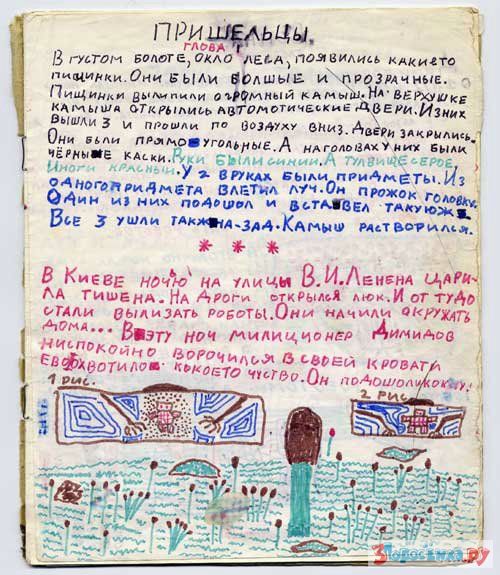 ПРИШЕЛЬЦЫ.
ГЛОВА 1
В ГУСТОМ БОЛОГЕ, ОКЛО ЛЕСА, ПОЯВИЛИСЬ КАКИЕТО
ПИЩИНКИ. ОНИ БЫЛИ БОЛШЫЕ И ПРОЗРАЧНЫЕ.
ПИЩИНКИ ВЫЛИПИЛИ ОГРОМНЫЙ КАМЫШ. НА ВЕРХУШКЕ
КАМЫША ОТКРЫЛИСЬ АВТОМОТИЧЕСКИЕ ДВЕРИ. ИЗ НИХ
ВЫШЛИ 3 И ПРОШЛИ ПО ВОЗДУХУ ВНИЗ. ДВЕРИ ЗАКРЫЛИСЬ.
ОНИ БЫЛИ ПРЯМОУГОЛЬНЫЕ. А НА ГОЛОВАХ У НИХ БЫЛИ
ЧЁРНЫЕ КАСКИ. РУКИ БЫЛИ СИНИИ. А ТУЛВИЩЕ СЕРОЕ,
ИНОГИ КРАСНЫЙ. У 2 В РУКАХ БЫЛИ ПРИДМЕТЫ. ИЗ
ОДНОГО ПРИДМЕТА ВЛЕТИЛ ЛУЧ. ОН ПРОЖОК ГОЛОВКУ.
ОДИН ИЗ НИХ ПОДОШОЛ И ВСТАВЕЛ ТАКУЮЖ
ВСЕ 3 УШЛИ ТАКЖ НА-ЗАД. КАМЫШ РАСТВОРИЛСЯ.
* * *
В КИЕВЕ НОЧЬЮ НА УЛИЦЫ В.И.ЛЕНЕНА ЩАРИ-
ЛА ТИШЕНА. НА ДРОГИ ОТКРЫЛСЯ ЛЮК. И ОТ ТУДО
СТАЛИ ВЫЛИЗАТЬ РОБОТЫ. ОНИ НАЧИЛИ ОКРУЖАТЬ
ДОМА... В ЭТУ НОЧ МИЛИЦИОНЕР ДИМИДОВ
НИСПОКОЙНО ВОРОЧИЛСЯ В СВОЕЙ КРОВАТИ
ЕВО ОХВОТИЛО КОКОЕТО ЧУСТВО. ОН ПОДОШОЛ К ОКНУ.
1 РИС.
2 РИС.
ЗЛОВОСЁНКА.РУ